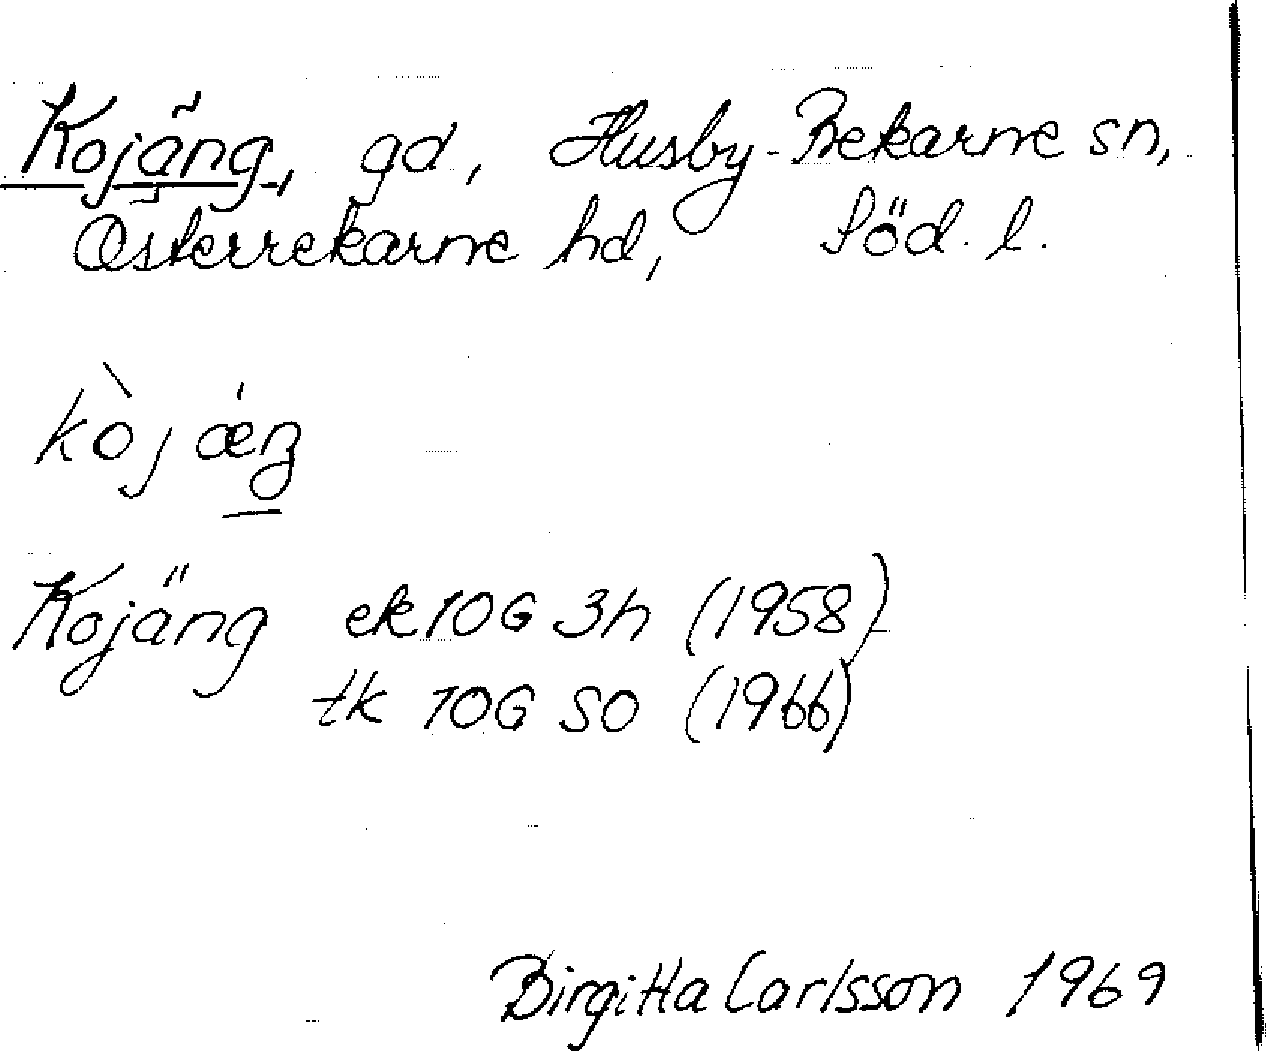 Kojäng, gd, Husby-Rekarne sn,
Österrekarne hd, Söd. l.
kòjæŋ
Kojäng ek 10G 3h (1958)
tk 10G SO (1966)
Birgitta Carlsson 1969